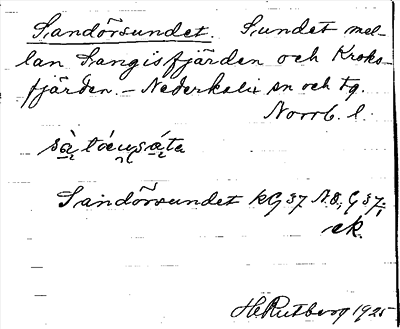 Sandörsundet. Sundet mel-
lan Långisfjärden och Kroks-
fjärden. – Nederkalix sn och tg.
Norrb. l.
Sandörsundet kG 37 N.O; G 37;
ek.
H Rutberg 1925